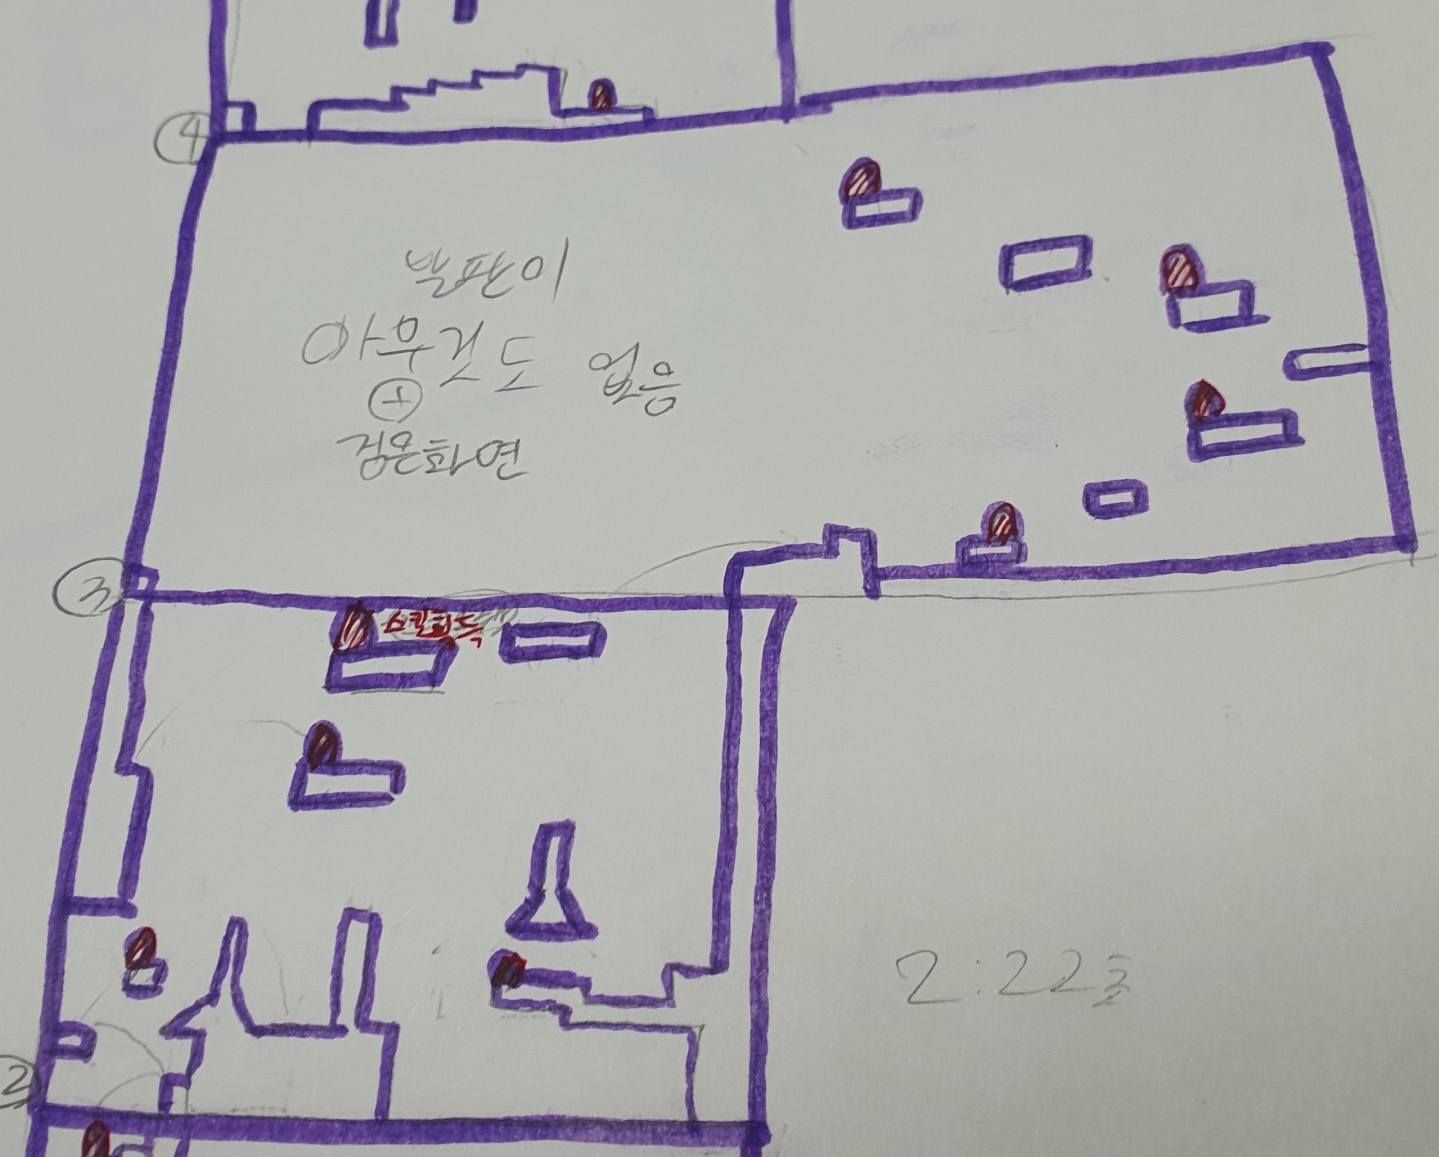 ④
발판이
아무것도 없음
⊕
검은화면
③
스킬획득
2:22초
②